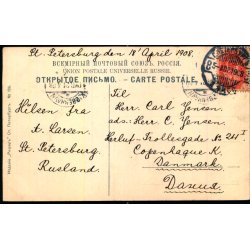 St. Petersburg den 18' April 1908.
ВСЕМІРНЫЙ ПОЧТОВЫЙ СОЮЗЪ. РОССІЯ.
UNION POSTALE UNIVERSELLE RUSSIE.
ОТКРЫТОЕ ПИСЬМО. – CARTE POSTALE.
Hilsen fra
A. Larsen
St. Petersburg
Rusland
Til
Herr Carl Jensen.
adres: Herr C. Jensen.
Herluf-Trollesgade No 24 I
Copenhaque K.
Danmark